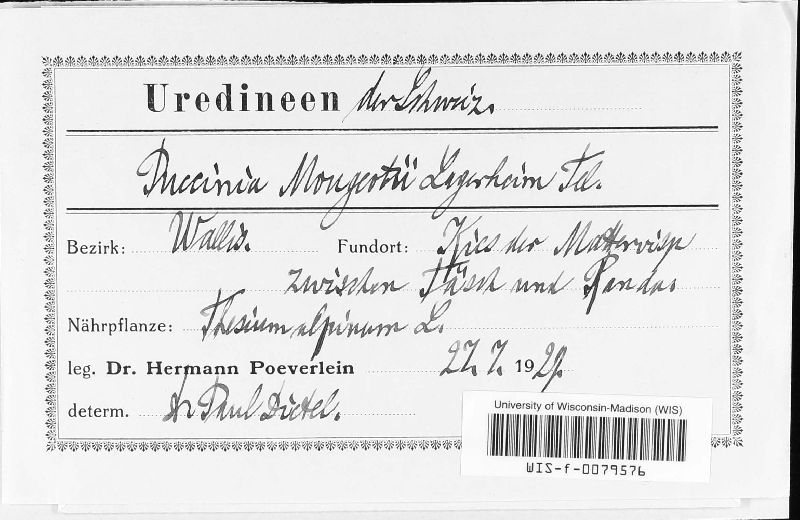 Uredineen der Schweiz.
Puccinia Mougeotii Lagerheim Tel.
Bezirk: Wallis. Fundort: Kies der Mattervisp
zwischen Täsch und Randa.
Nährpflanze: Thesium alpinum L.
leg. Dr. Hermann Poeverlein 27. 7. 1929.
determ. Dr Paul Dietel.
University of Wisconsin-Madison (WIS)
WIS-f-0079576